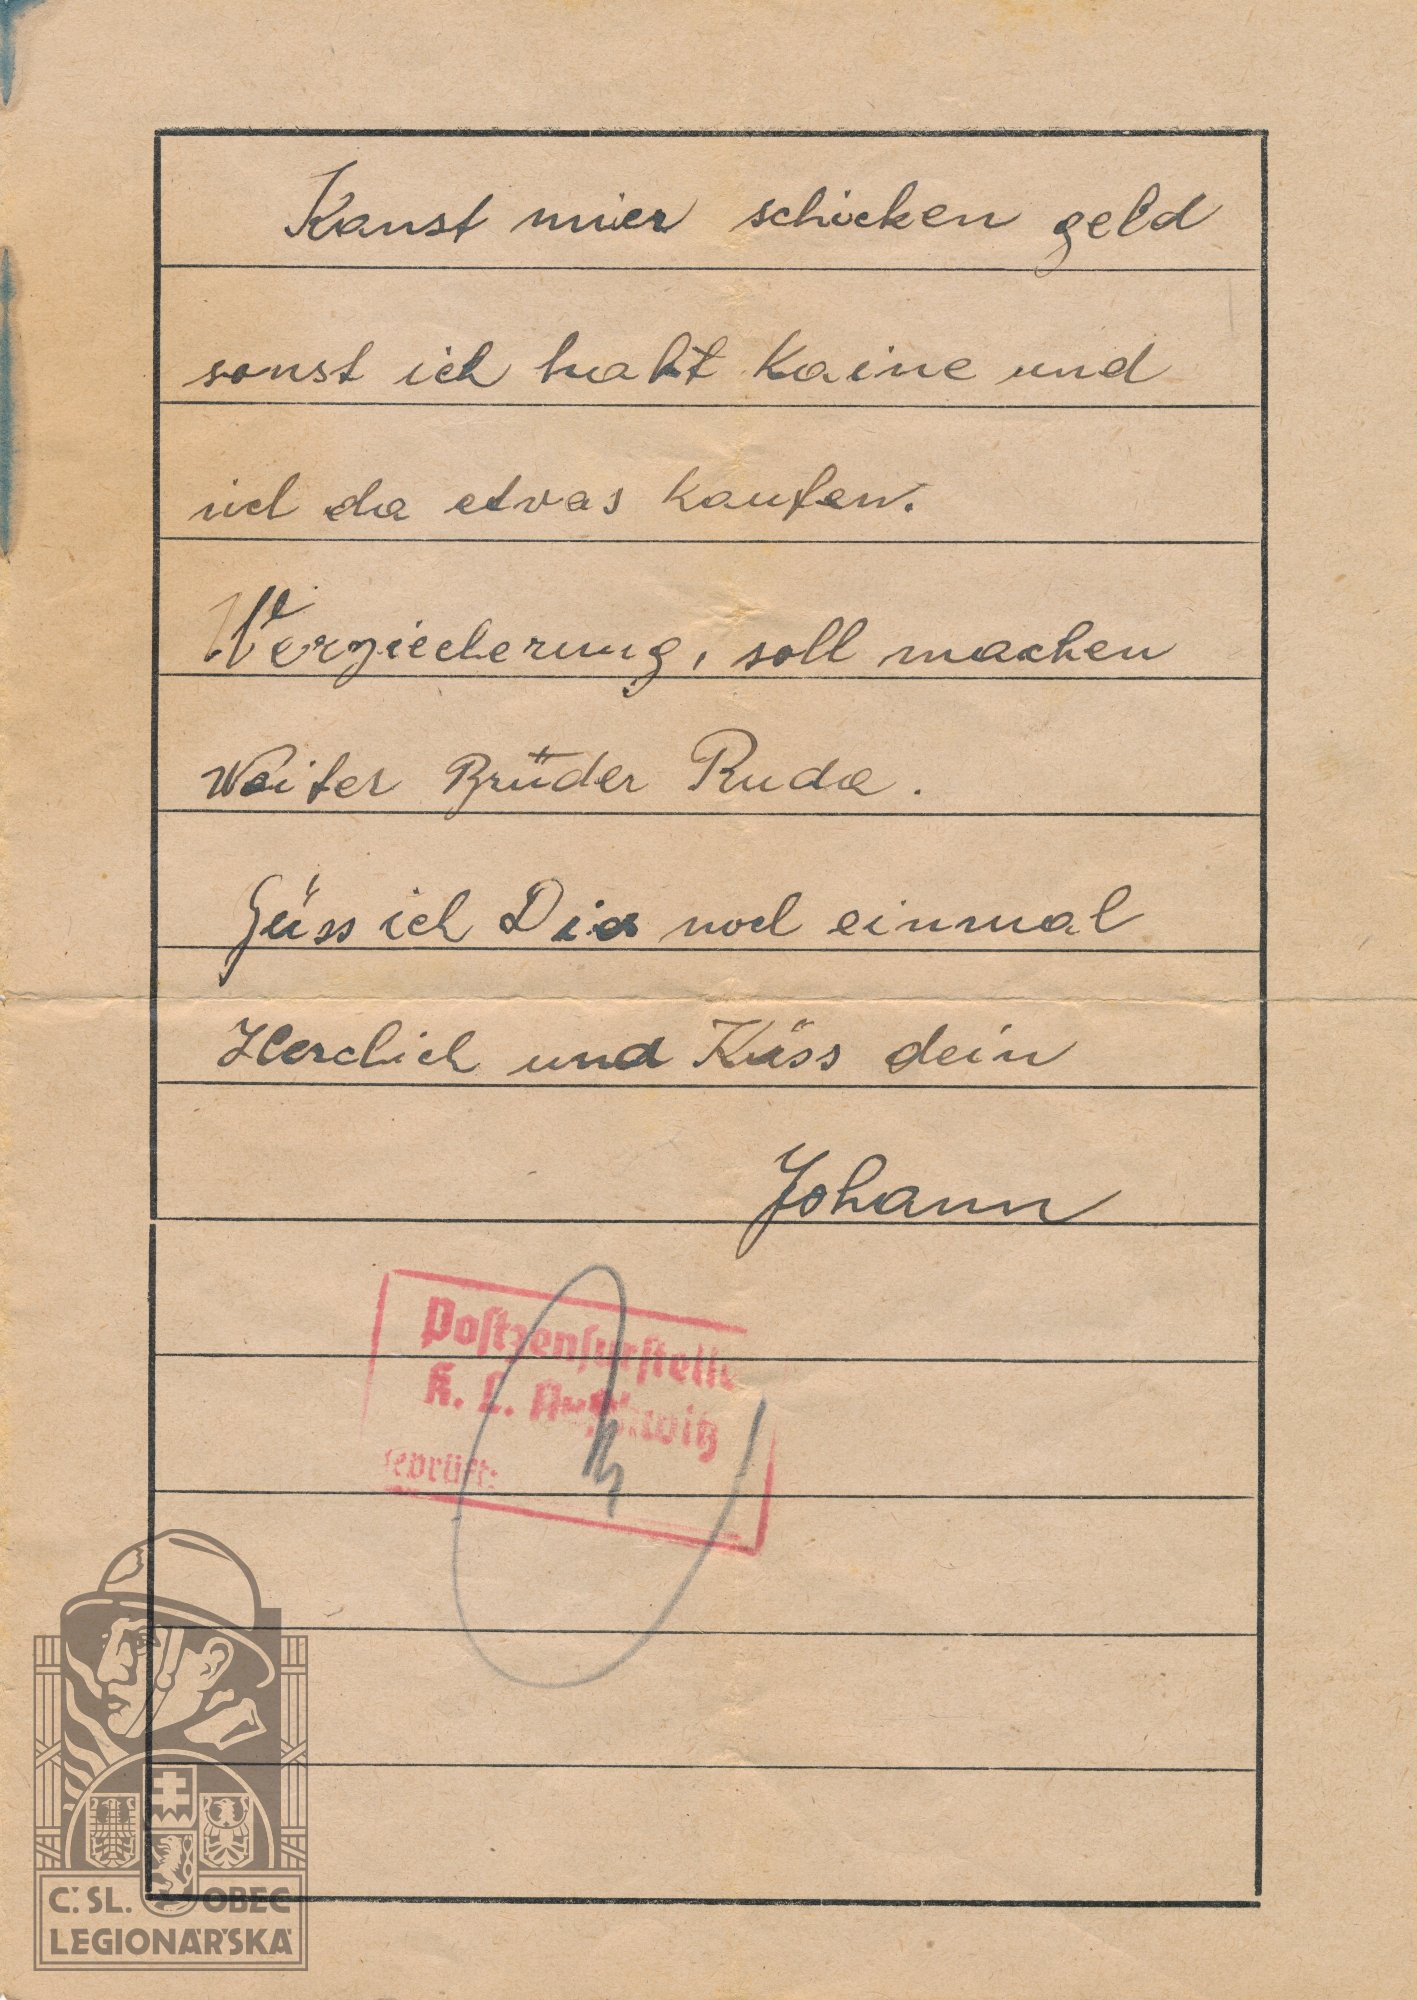 Kanst mier schicken geld
sonst ich habt Kaine und
ich da etvas kaufen.
Verziecherung, soll machen
Weiter Brüder Ruda.
Güss ich Dir noch einmal
Herclich und Küss dein
Johann
Postzensurstelle
K. L. Auschwitz
geprüft:
Č. SL. OBEC
LEGIONÁŘSKÁ